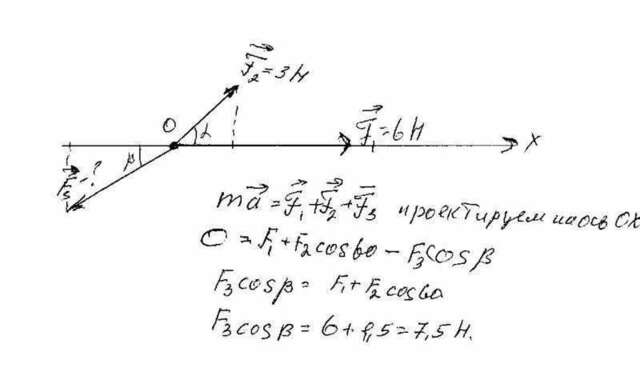 F₂=3Н
O
α
F=6Н
x
β
F₃-?
ma=F₁+F₂+F₃ проектируем на ось OX
0=F₁+F₂cos60-F₃cosβ
F₃cosβ= F₁+F₂cos60
F₃cosβ=6+1,5=7,5 Н.